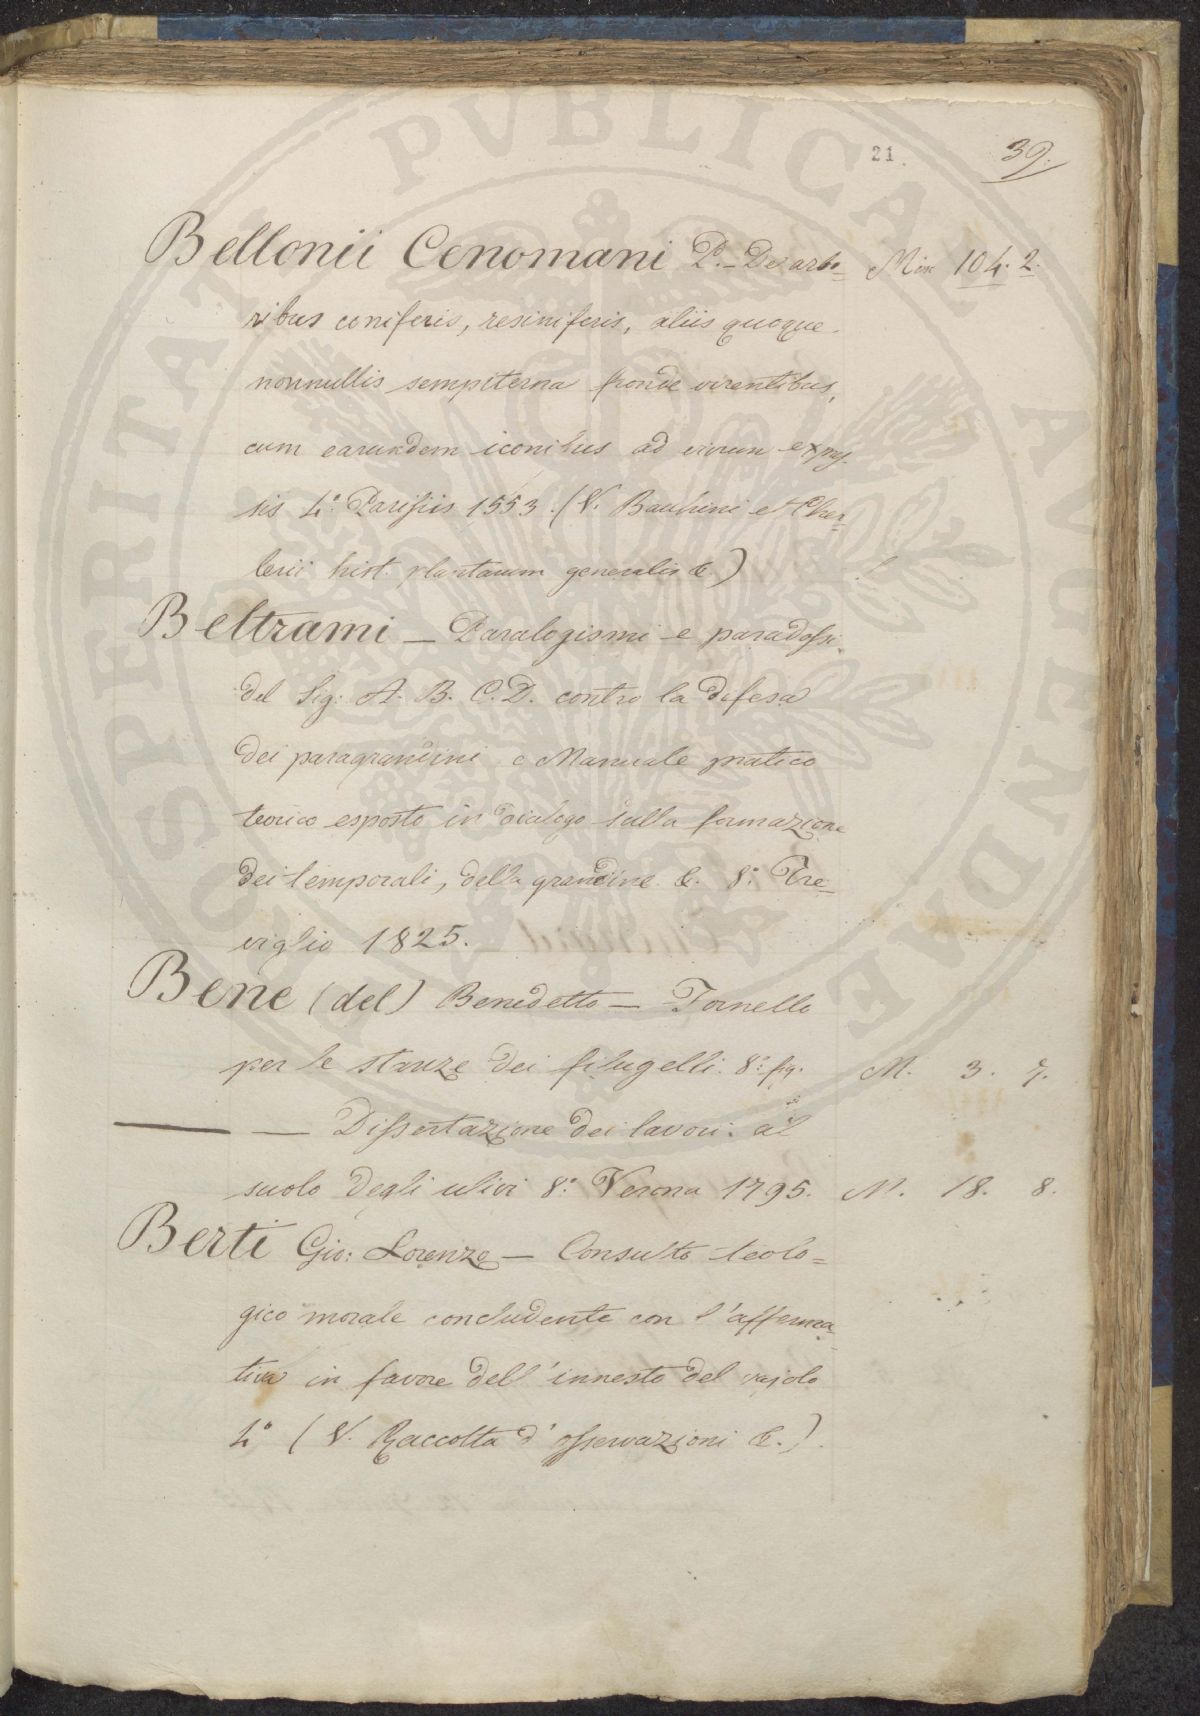 21.
39.
Bellonii Cenomani P. - De arbo= Mix 104. 2.
ribus coniferis, resiniferis, aliis quoque
nonnullis sempiterna fronde virentibus,
cum earundem iconibus ad vivum expres=
sis 4.° Parisiis 1553. (V. Bauhini et Cher=
lerii hist. plantarum generalis &.)
Beltrami — Paralogismi e paradossi
del Sig: A. B. C. D. contro la difesa
dei paragrandini e Manuale pratico
teorico esposto in dialogo sulla formazione
dei temporali, della grandine &. 8.° Tre=
viglio 1825.
Bene (del) Benedetto — Fornello
per le stanze dei filugelli. 8.° fig. M. 3. 7.
— — Dissertazione dei lavori al
suolo degli ulivi 8.° Verona 1795. M. 18. 8.
Berti Gio: Lorenzo — Consulto teolo=
gico morale concludente con l'afferma=
tiva in favore dell'innesto del vajolo
4.° (V. Raccolta d'osservazioni &.).
PROSPERITATI PVBLICAE AVGENDAE